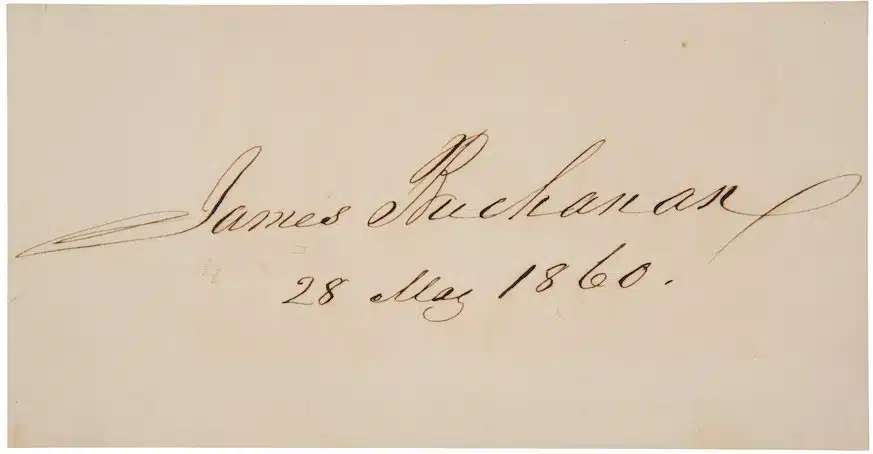 James Buchanan
28 May 1860.